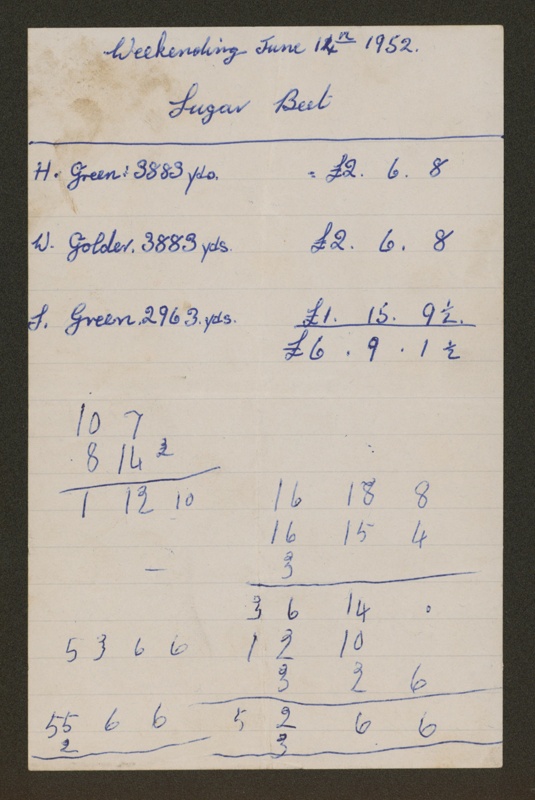 Weekending June 14th 1952.
Sugar Beet
H. Green: 3883 yds. = £2. 6. 8
W. Golder. 3883 yds. £2. 6. 8
S. Green. 2963. yds. £1. 15. 9½.
£6. 9. 1½
10 7
8 14 2
1 12 10
16 18 8
16 15 4
3
36 14 0
12 10
3 2 6
5 3 6 6
52 6 6
3
55 6 6
2